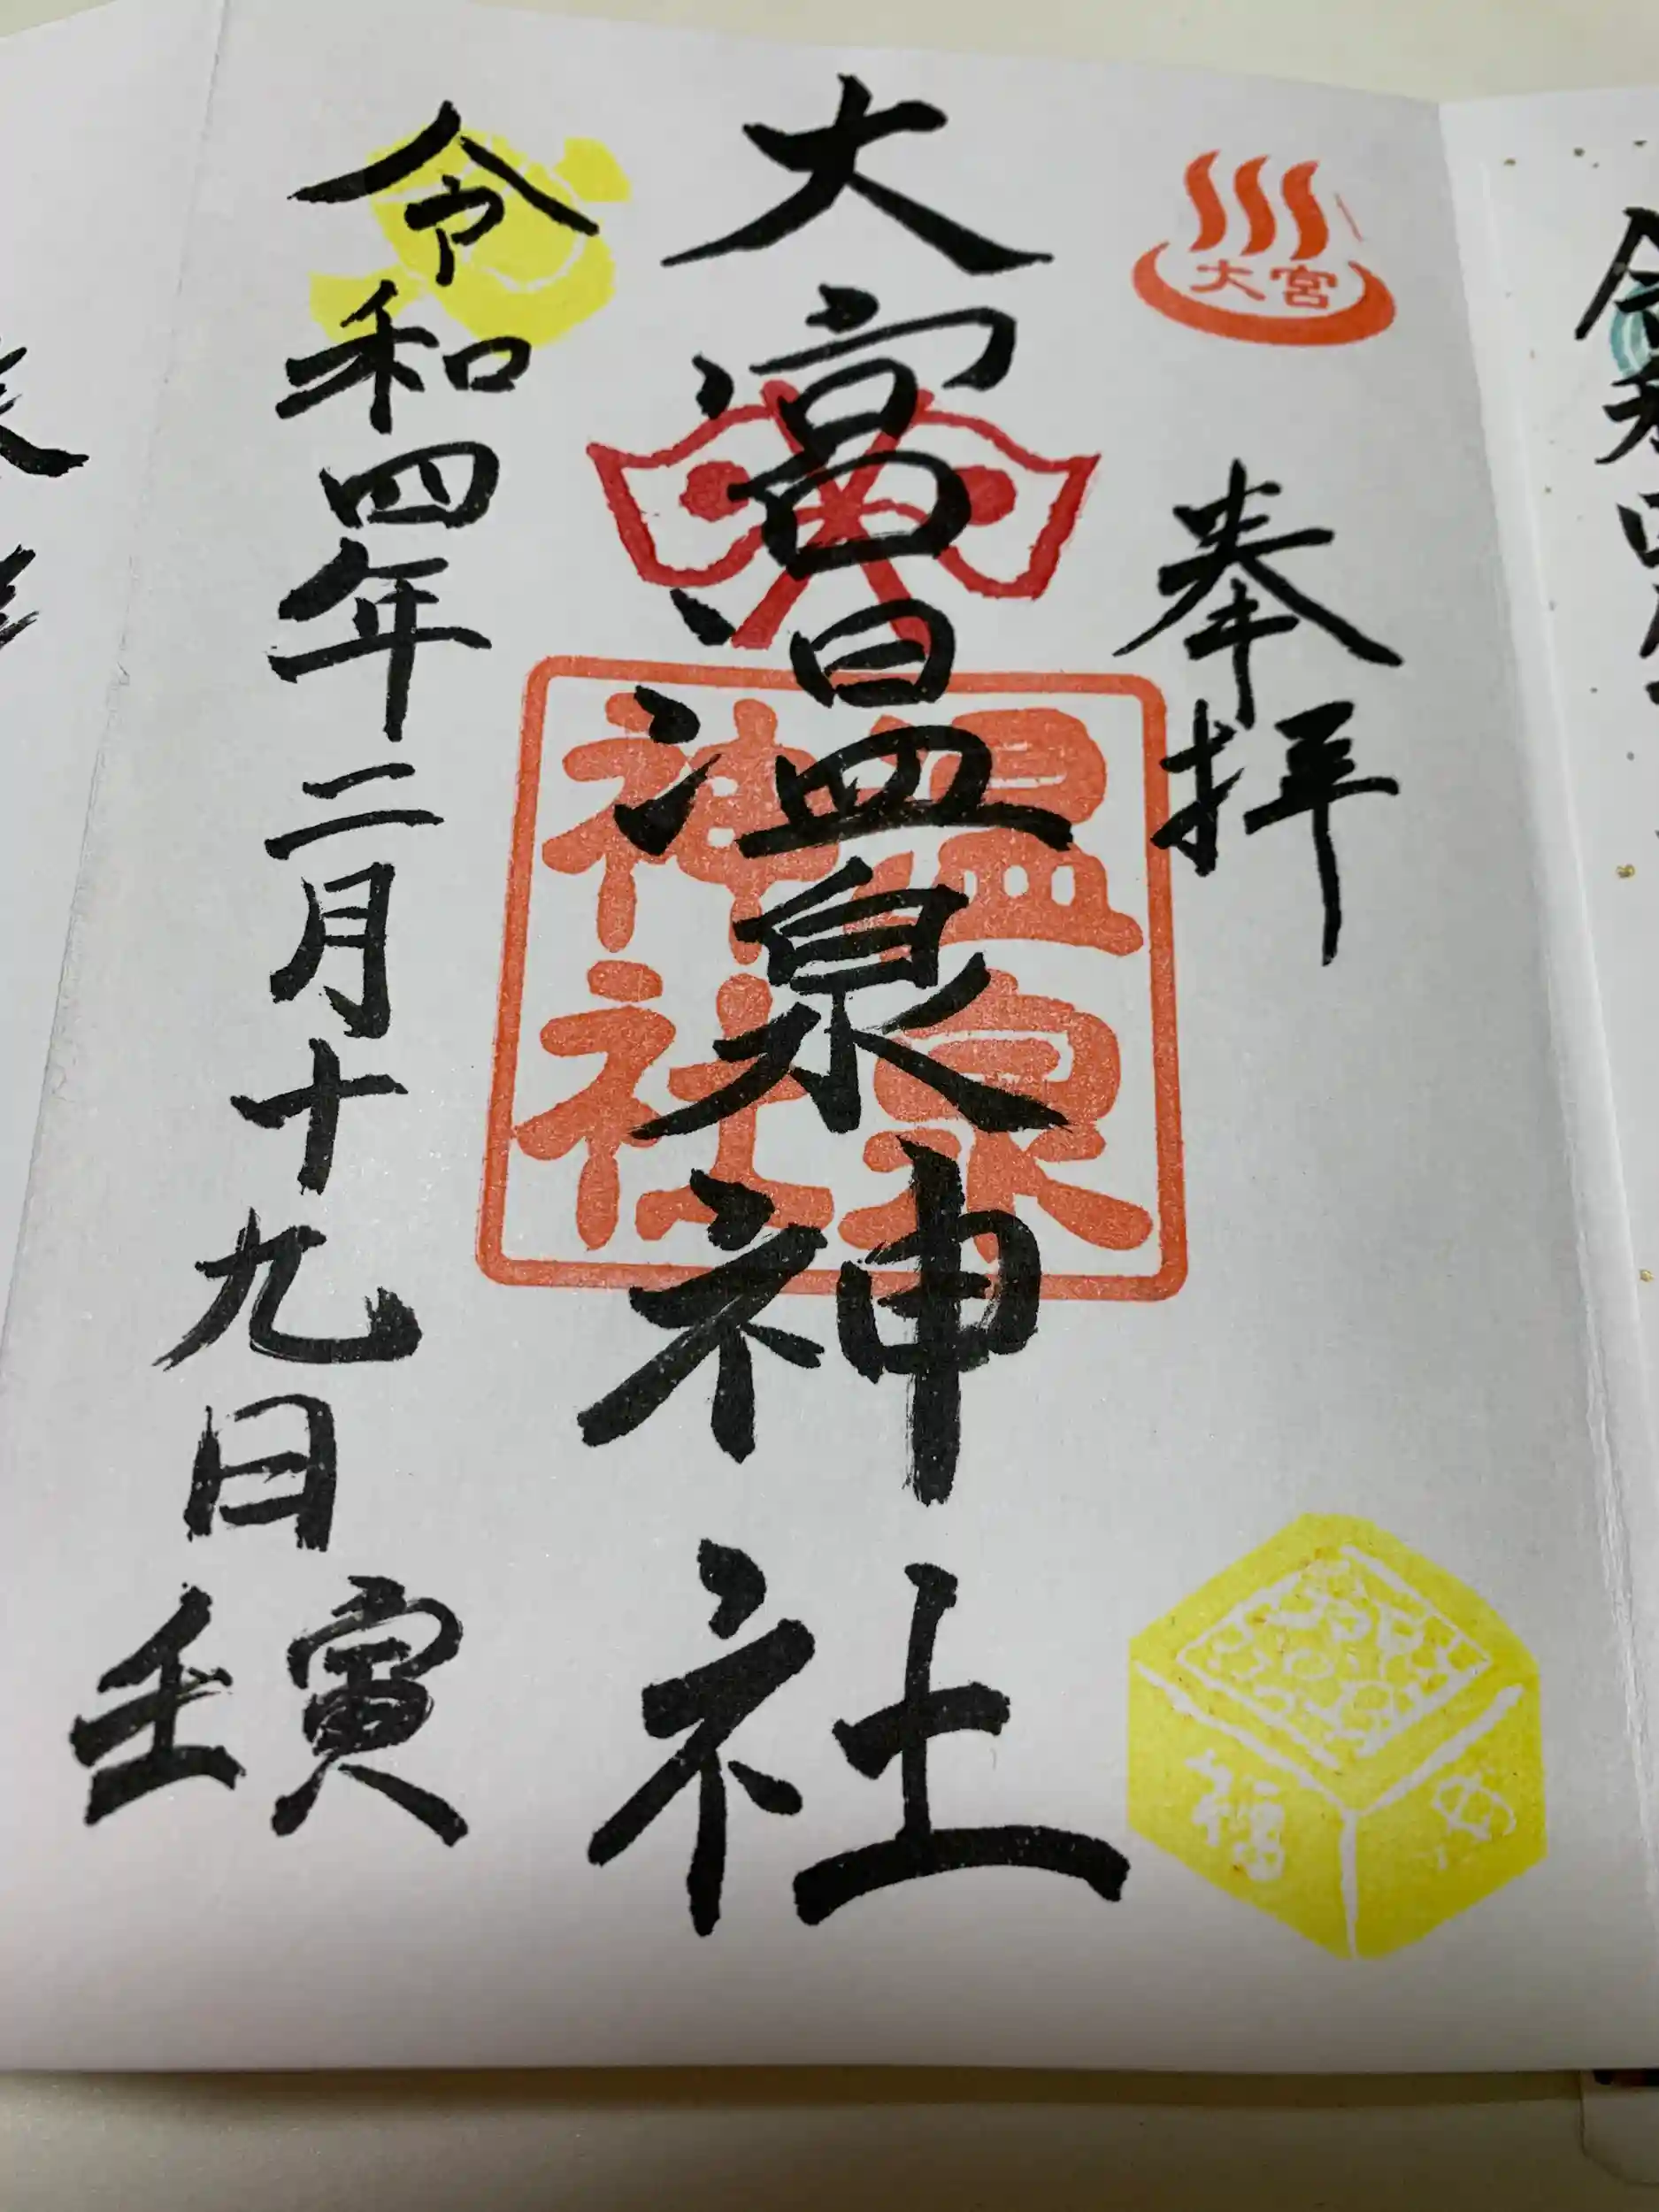 大宮
奉拝
大宮温泉神社
温泉
神社
令和四年二月十九日
壬寅
福